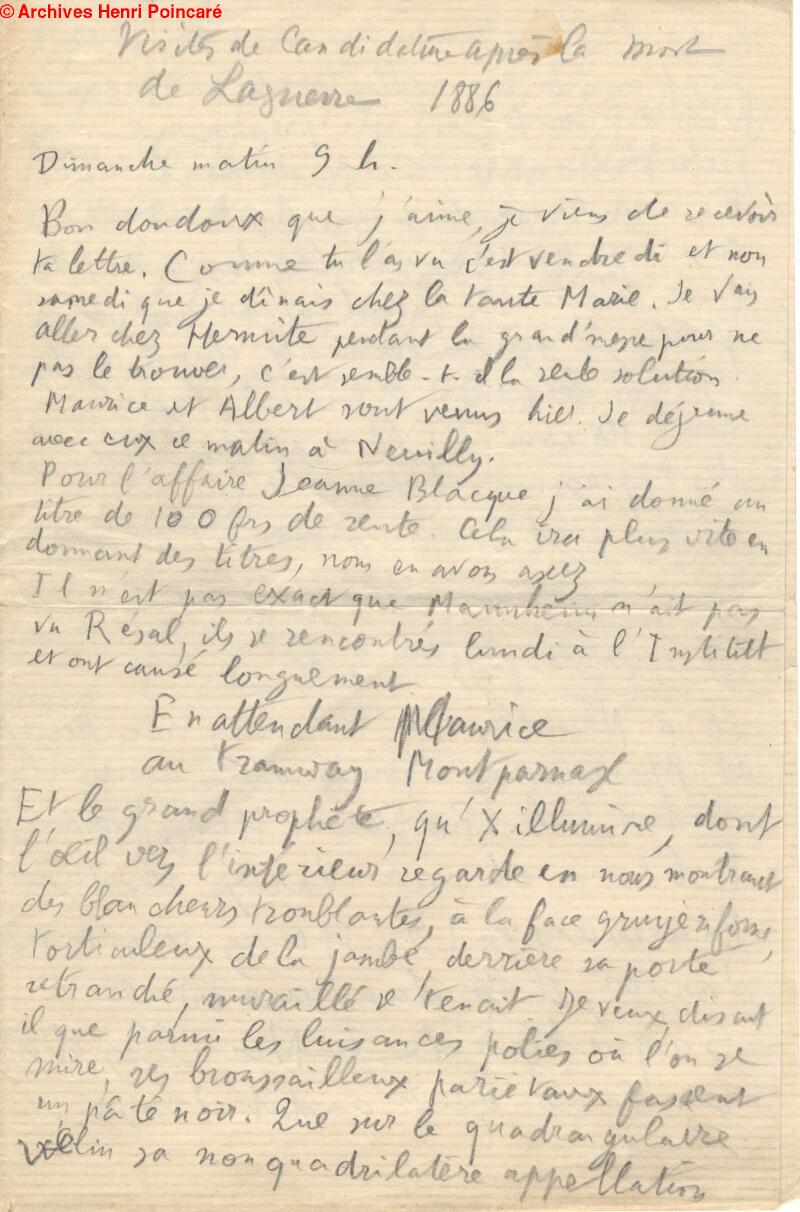 © Archives Henri Poincaré
Visites de Candidature après la mort
de Laguerre 1886
Dimanche matin 9 h.
Bon doudoux que j'aime, je viens de recevoir
ta lettre. Comme tu l'as vu c'est vendredi et non
samedi que je dînais chez la tante Marie. Je vais
aller chez Hermite pendant la grand'messe pour ne
pas le trouver, c'est semble-t-il la seule solution.
Maurice et Albert sont venus hier. Je déjeune
avec eux ce matin à Neuilly.
Pour l'affaire Jeanne Blacque j'ai donné un
titre de 100 frs de rente. Cela ira plus vite en
donnant des titres, nous en avons assez
Il n'est pas exact que Mannheim n'ait pas
vu Résal, ils se rencontrés lundi à l'Institut
et ont causé longuement
En attendant Maurice
au tramway Montparnasse
Et le grand prophète, qu'X illumine, dont
l'œil vers l'intérieur regarde en nous montrant
des blancheurs troublantes, à la face gruyériforme,
torticuleux de la jambe, derrière sa porte
retranché, muraillé se tenait. Je veux, disant
il que parmi les luisances polies où l'on se
mire, ses broussailleux pariétaux fassent
un pâté noir. Que sur le quadrangulaire
vélin sa non quadrilatère appellation